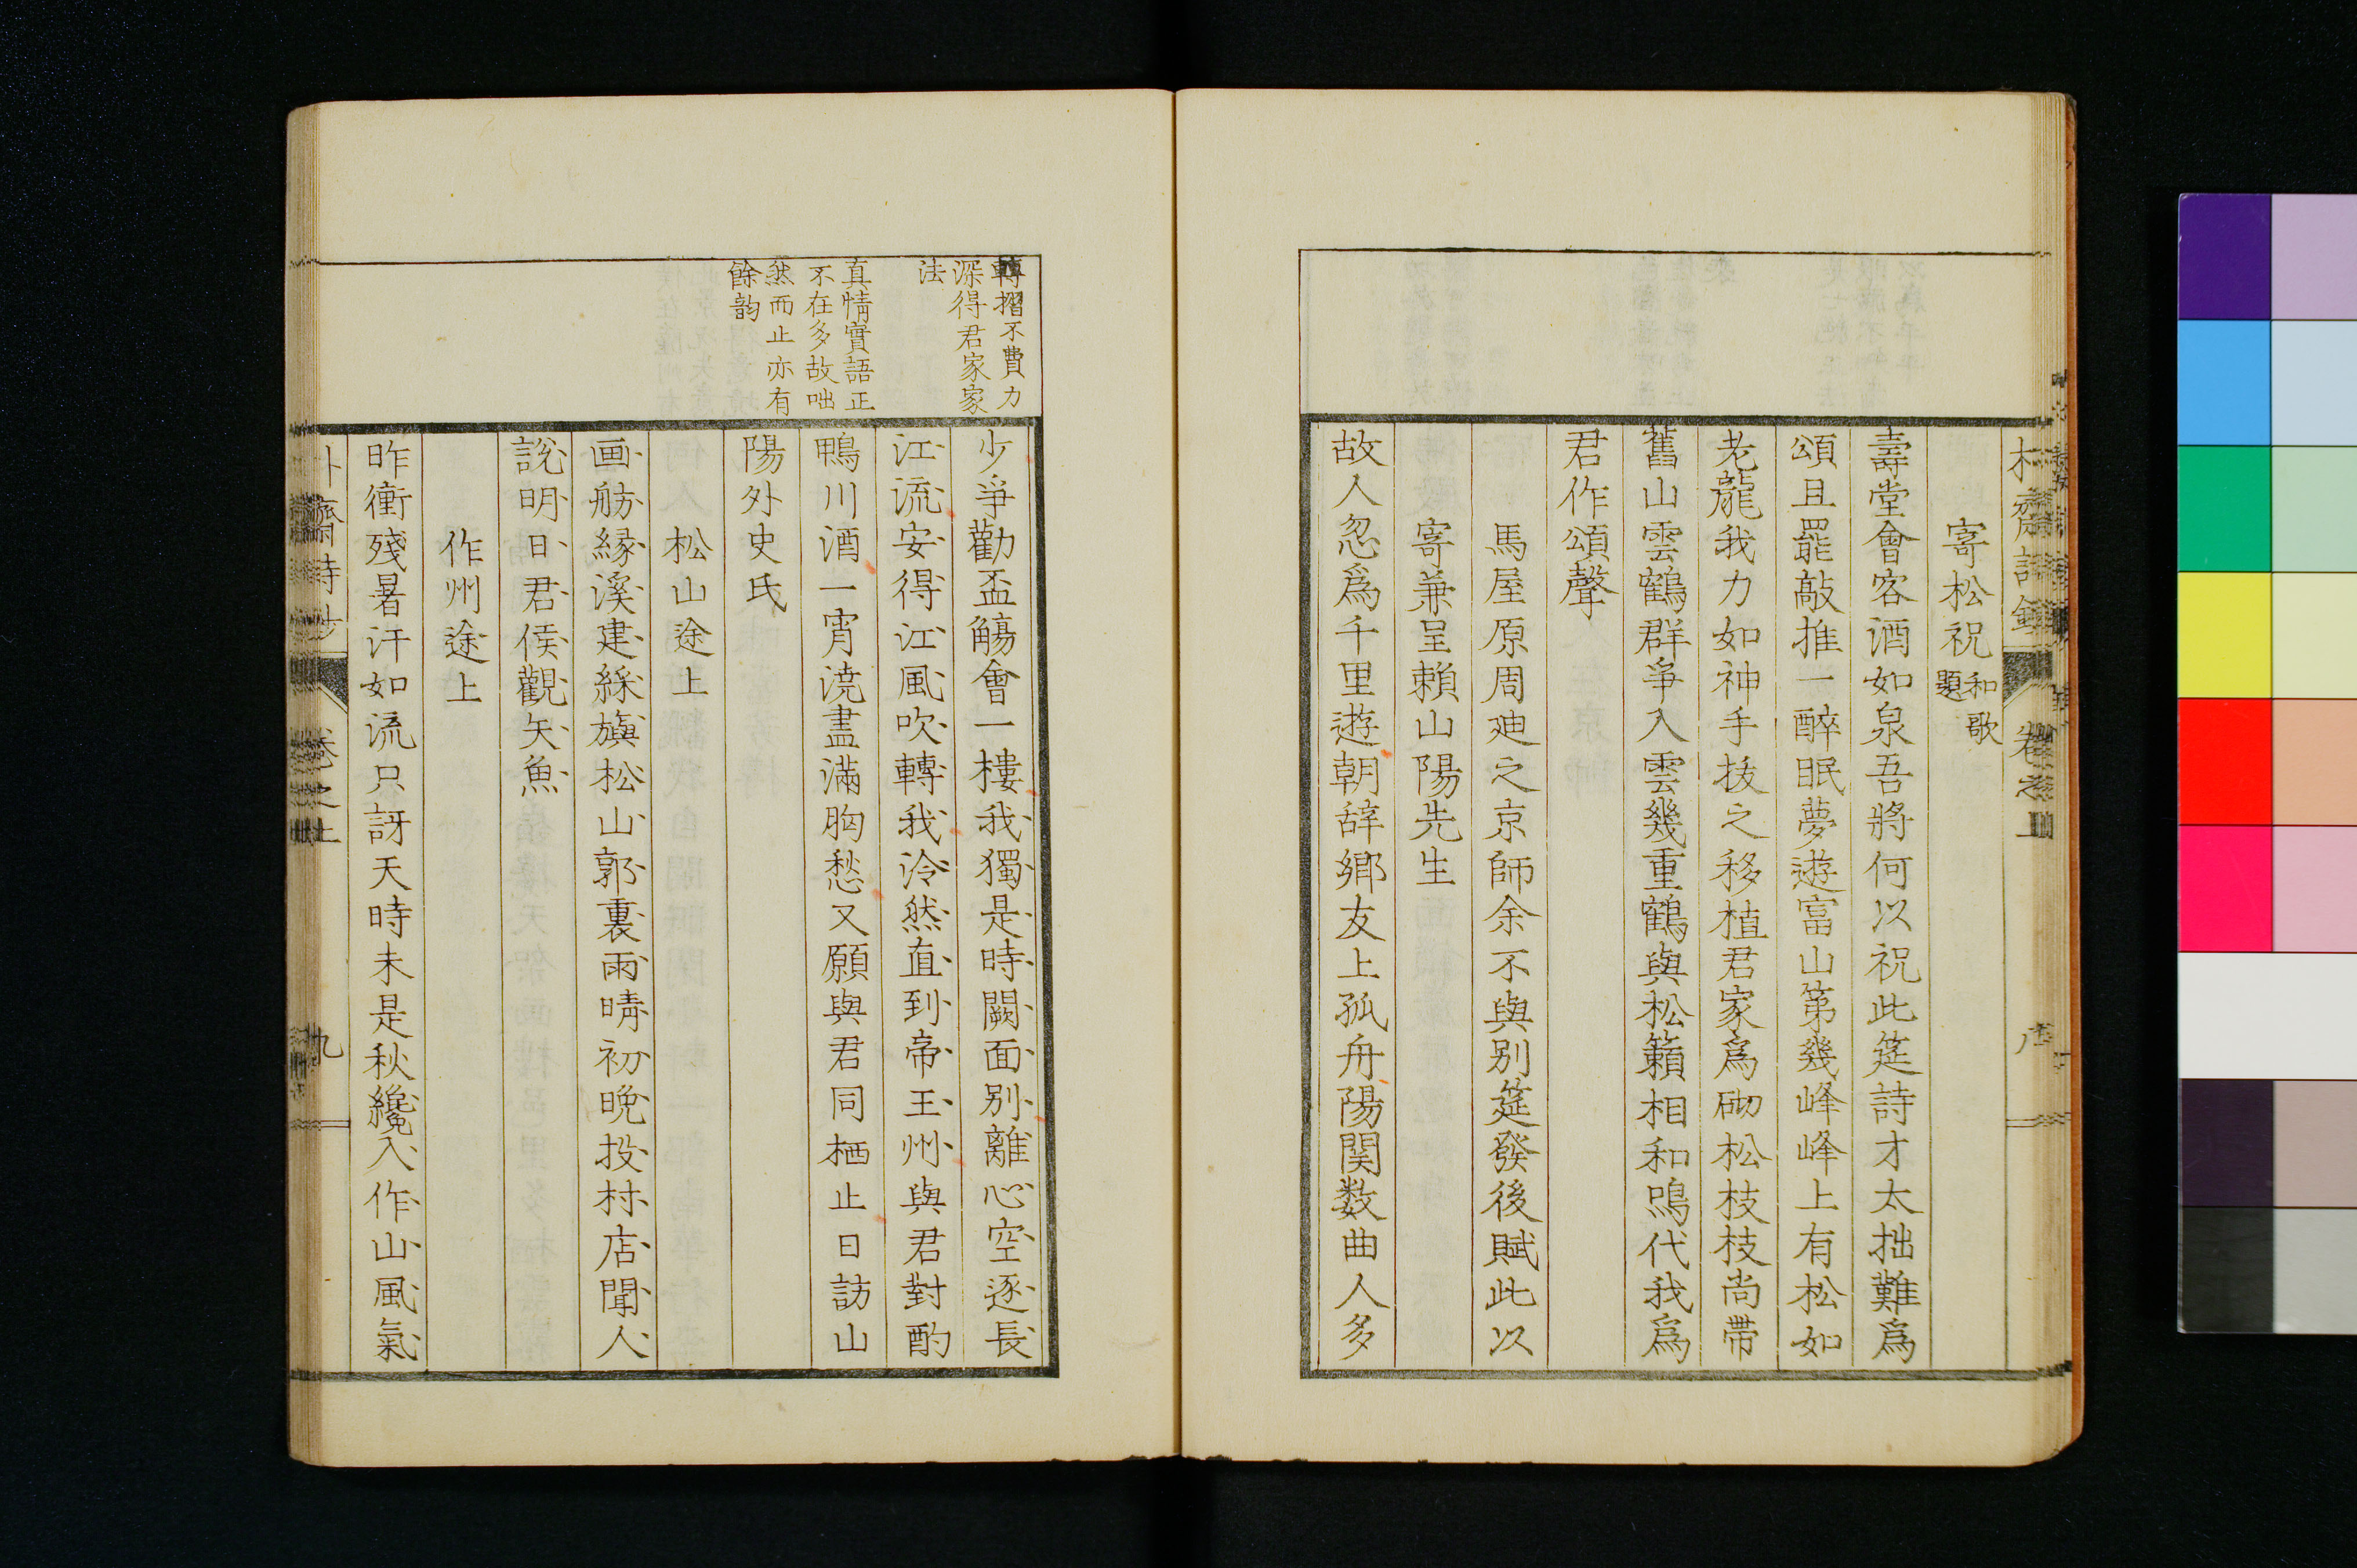 寄松祝和歌題
壽堂會客酒如泉吾將何以祝此筵詩才太拙難爲
頌且罷敲推一醉眠夢遊富山第幾峰峰上有松如
老龍我力如神手拔之移植君家爲砌松枝枝尚帶
舊山雲鶴群爭入雲幾重鶴與松籟相和鳴代我爲
君作頌聲
馬屋原周迪之京師余不與别筵發後賦此以
寄兼呈賴山陽先生
故人忽爲千里遊朝辞鄉友上孤舟陽関数曲人多
轉摺不費力
深得君家家
法
真情實語正
不在多故咄
然而止亦有
餘韵
少爭勸盃觴會一樓我獨是時闕面别離心空逐長
江流安得江風吹轉我泠然直到帝王州與君對酌
鴨川酒一宵澆盡滿胸愁又願與君同栖止日訪山
陽外史氏
松山途上
画舫緣溪建綵旗松山郭裏雨晴初晚投村店聞人
說明日君侯觀矢魚
作州途上
昨衝殘暑汗如流只訝天時未是秋纔入作山風氣
齋詩鈔
卷之上
九